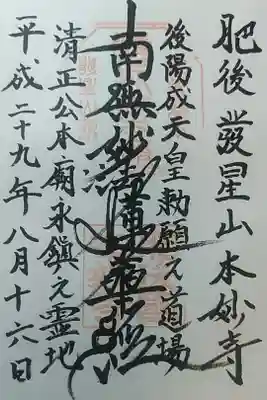 肥後發星山本妙寺
後陽成天皇勅願之道場
南無妙法蓮華経
清正公本廟永鎮之霊地
平成二十九年八月十六日